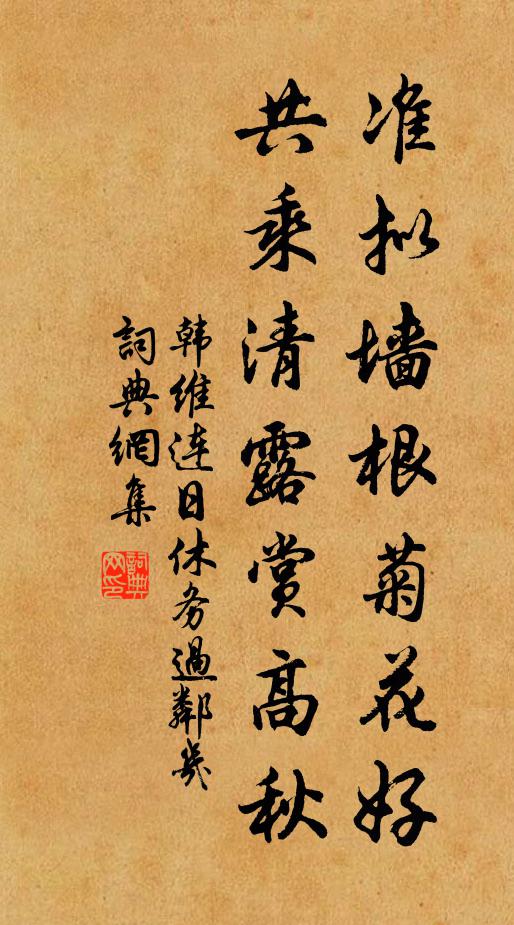 准拟墙根菊花好
共乘清露赏高秋
韩维连日休务過鄰幾
詞典網集
詞典網印